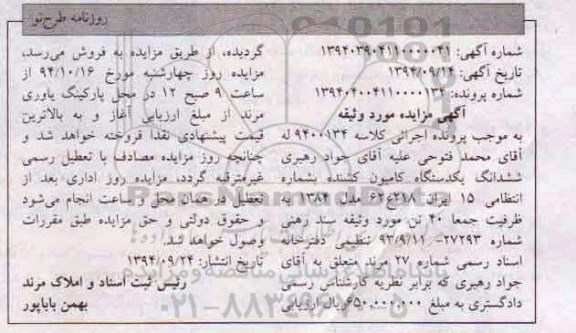 روزنامه طرح‌نو
شماره آگهی: ۱۳۹۴۰۳۹۰۴۱۱۰۰۰۰۰۴۱
تاریخ آگهی: ۱۳۹۴/۰۹/۱۴
شماره پرونده: ۱۳۹۴۰۴۰۰۴۱۱۰۰۰۰۱۳۴
آگهی مزایده مورد وثیقه
به موجب پرونده اجرائی کلاسه ۹۴۰۰۱۳۴ له
آقای محمد فتوحی علیه آقای جواد رهبری
ششدانگ یکدستگاه کامیون کشنده بشماره
انتظامی ۱۵ ایران ۲۱۸ع۶۲ مدل ۱۳۸۴ به
ظرفیت جمعا ۴۰ تن مورد وثیقه سند رهنی
شماره ۲۷۲۹۳- ۹۳/۹/۱۱ تنظیمی دفترخانه
اسناد رسمی شماره ۲۷ مرند متعلق به آقای
جواد رهبری که برابر نظریه کارشناس رسمی
دادگستری به مبلغ ۶۵۰,۰۰۰,۰۰۰ ریال ارزیابی
گردیده، از طریق مزایده به فروش می‌رسد،
مزایده روز چهارشنبه مورخ ۹۴/۱۰/۱۶ از
ساعت ۹ صبح ۱۲ در محل پارکینگ یاوری
مرند از مبلغ ارزیابی آغاز و به بالاترین
قیمت پیشنهادی نقدا فروخته خواهد شد و
چنانچه روز مزایده مصادف با تعطیل رسمی
غیرمترقبه گردد، مزایده روز اداری بعد از
تعطیل در همان محل و ساعت انجام می‌شود
و حقوق دولتی و حق مزایده طبق مقررات
وصول خواهد شد.
تاریخ انتشار: ۱۳۹۴/۰۹/۲۴
رئیس ثبت اسناد و املاک مرند
بهمن باباپور
ParsNamadData
پایگاه اطلاع رسانی مناقصه و مزایده